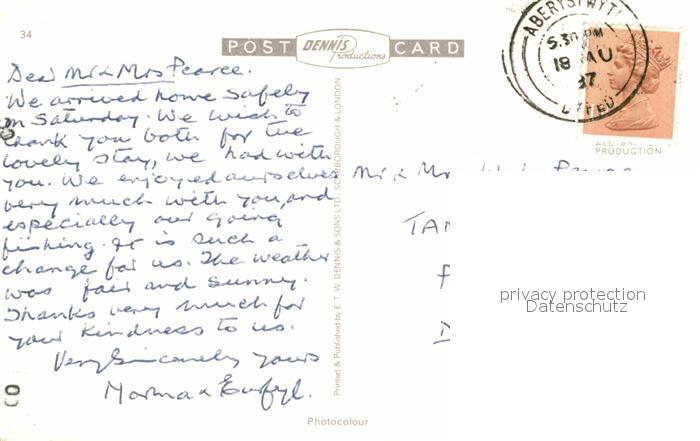 34
POST DENNIS Productions CARD
ABERYSTWYTH
5.30 PM
18 AU
87
DYFED
PRODUCTION
Dear Mr & Mrs Pearce.
We arrived home safely
on Saturday. We wish to
thank you both for the
lovely stay, we had with
you. We enjoyed ourselves
very much with you, and
especially our going
fishing. It is such a
change for us. The weather
was fair and sunny.
Thanks very much for
your kindness to us.
Very Sincerely yours
Norma & Eurfyl.
Mr & Mr Pearce
TAN
F
D
privacy protection
Datenschutz
Printed & Published by E. T. W. DENNIS & SONS LTD. SCARBOROUGH & LONDON
Photocolour